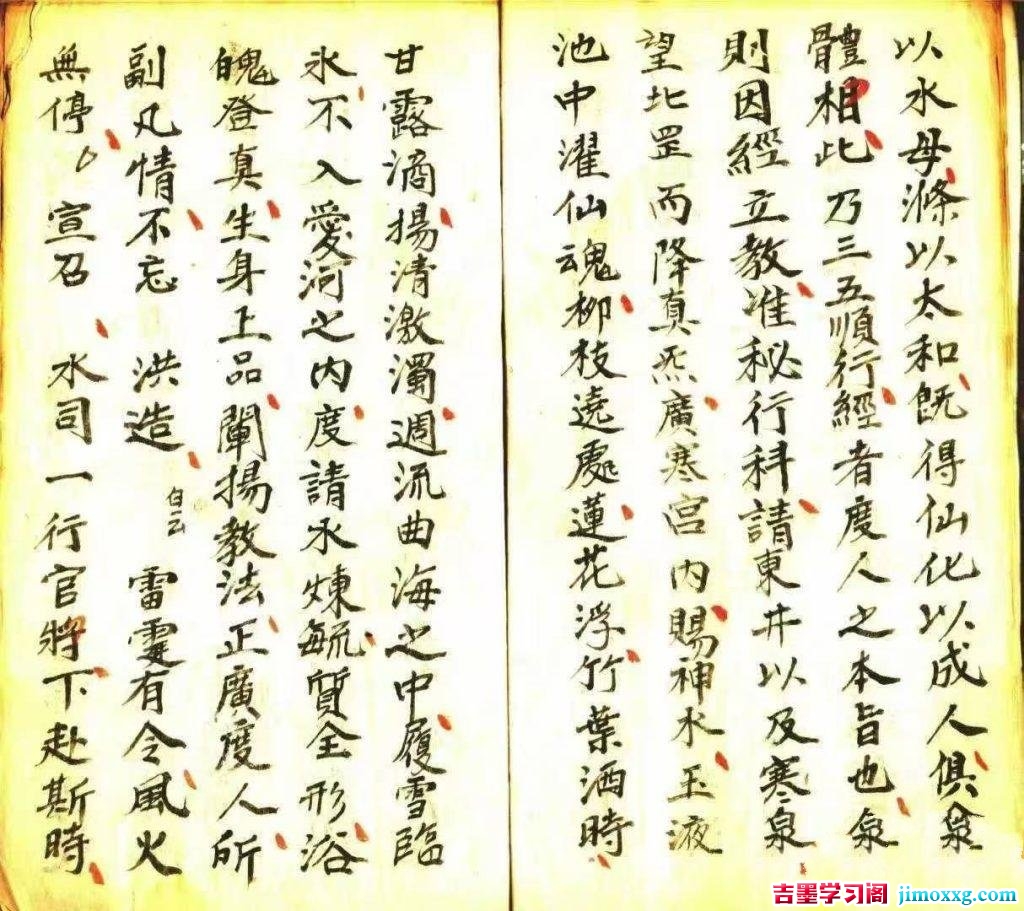 以水母滌以太和既得仙化以成人俱㒶
體相此乃三五順行經者度人之本旨也㒶
則因經立教准秘行科請東井以及寒泉
望北罡而降真炁廣寒宮內賜神水玉液
池中濯仙魂柳枝遶處蓮花浮竹葉洒時
甘露滴揚清激濁週流曲海之中履雪臨
氷不入愛河之內度請水煉毓質全形浴
魄登真生身上品闡揚教法正廣度人所
副凡情不忘 洪造 白云 雷霆有令風火
無停 宣召 水司一行官將下赴斯時
吉墨学习阁 jimoxxg.com